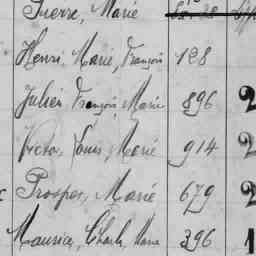 Pierre, Marie
Henri Marie, François 128
Julien François, Marie 896 2
Victor, Louis, Marie 914 2
Prosper, Marie 679 2
Maurice, Charles, Marie 396 1